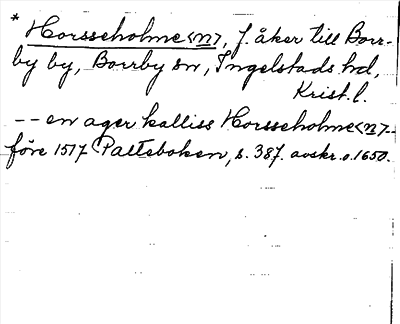 * Horsseholme<n>, f. åker till Borr-
by by, Borrby sn, Ingelstads hd,
Krist. l.
-- en ager kalliss Horsseholme<n> --
före 1517 Palteboken, s. 387. avskr. o. 1650.